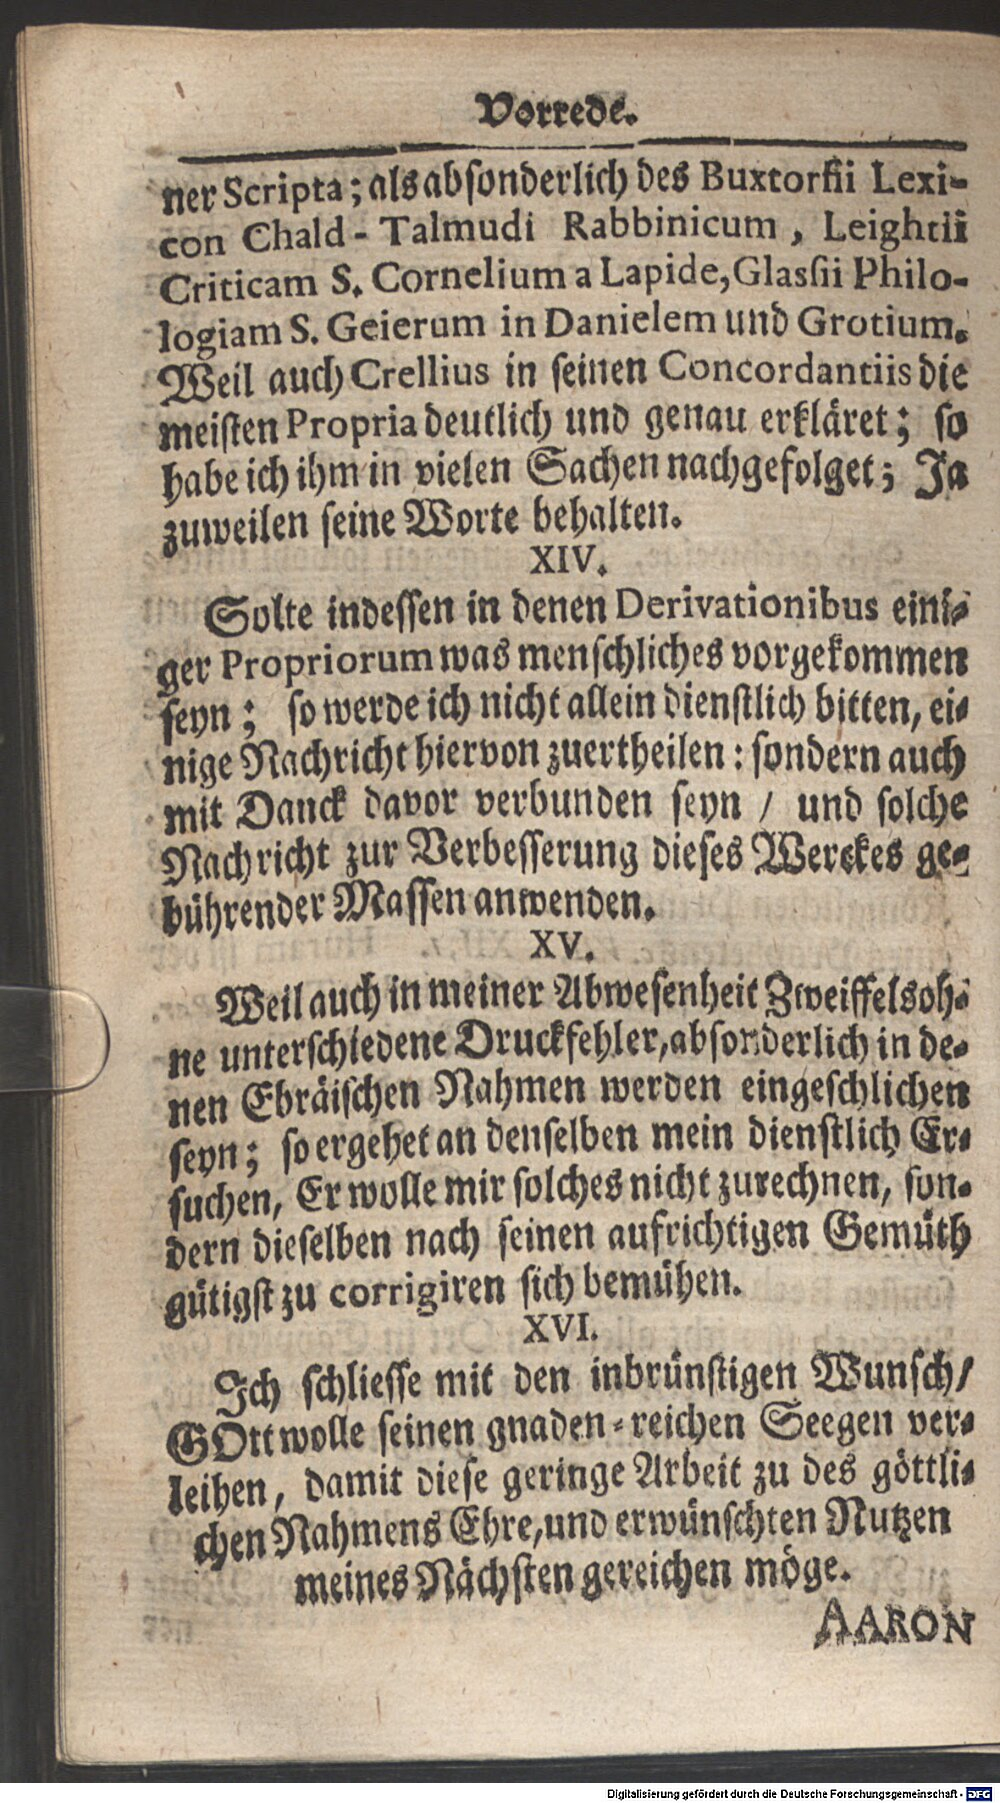 Vorrede.
ner Scripta; als absonderlich des Buxtorfii Lexi-
con Chald-Talmudi Rabbinicum, Leightii
Criticam S. Cornelium a Lapide, Glassii Philo-
logiam S. Geierum in Danielem und Grotium.
Weil auch Crellius in seinen Concordantiis die
meisten Propria deutlich und genau erkläret; so
habe ich ihm in vielen Sachen nachgefolget; Ja
zuweilen seine Worte behalten.
XIV.
Solte indessen in denen Derivationibus eini-
ger Propriorum was menschliches vorgekommen
seyn; so werde ich nicht allein dienstlich bitten, ei-
nige Nachricht hiervon zuertheilen: sondern auch
mit Danck davor verbunden seyn / und solche
Nachricht zur Verbesserung dieses Werckes ge-
bührender Massen anwenden.
XV.
Weil auch in meiner Abwesenheit Zweiffelsoh-
ne unterschiedene Druckfehler, absonderlich in de-
nen Ebräischen Nahmen werden eingeschlichen
seyn; so ergehet an denselben mein dienstlich Er-
suchen, Er wolle mir solches nicht zurechnen, son-
dern dieselben nach seinen aufrichtigen Gemüth
gütigst zu corrigiren sich bemühen.
XVI.
Ich schliesse mit den inbrünstigen Wunsch /
GOtt wolle seinen gnaden-reichen Seegen ver-
leihen, damit diese geringe Arbeit zu des göttli-
chen Nahmens Ehre, und erwünschten Nutzen
meines Nächsten gereichen möge.
AARON
Digitalisierung gefördert durch die Deutsche Forschungsgemeinschaft - DFG